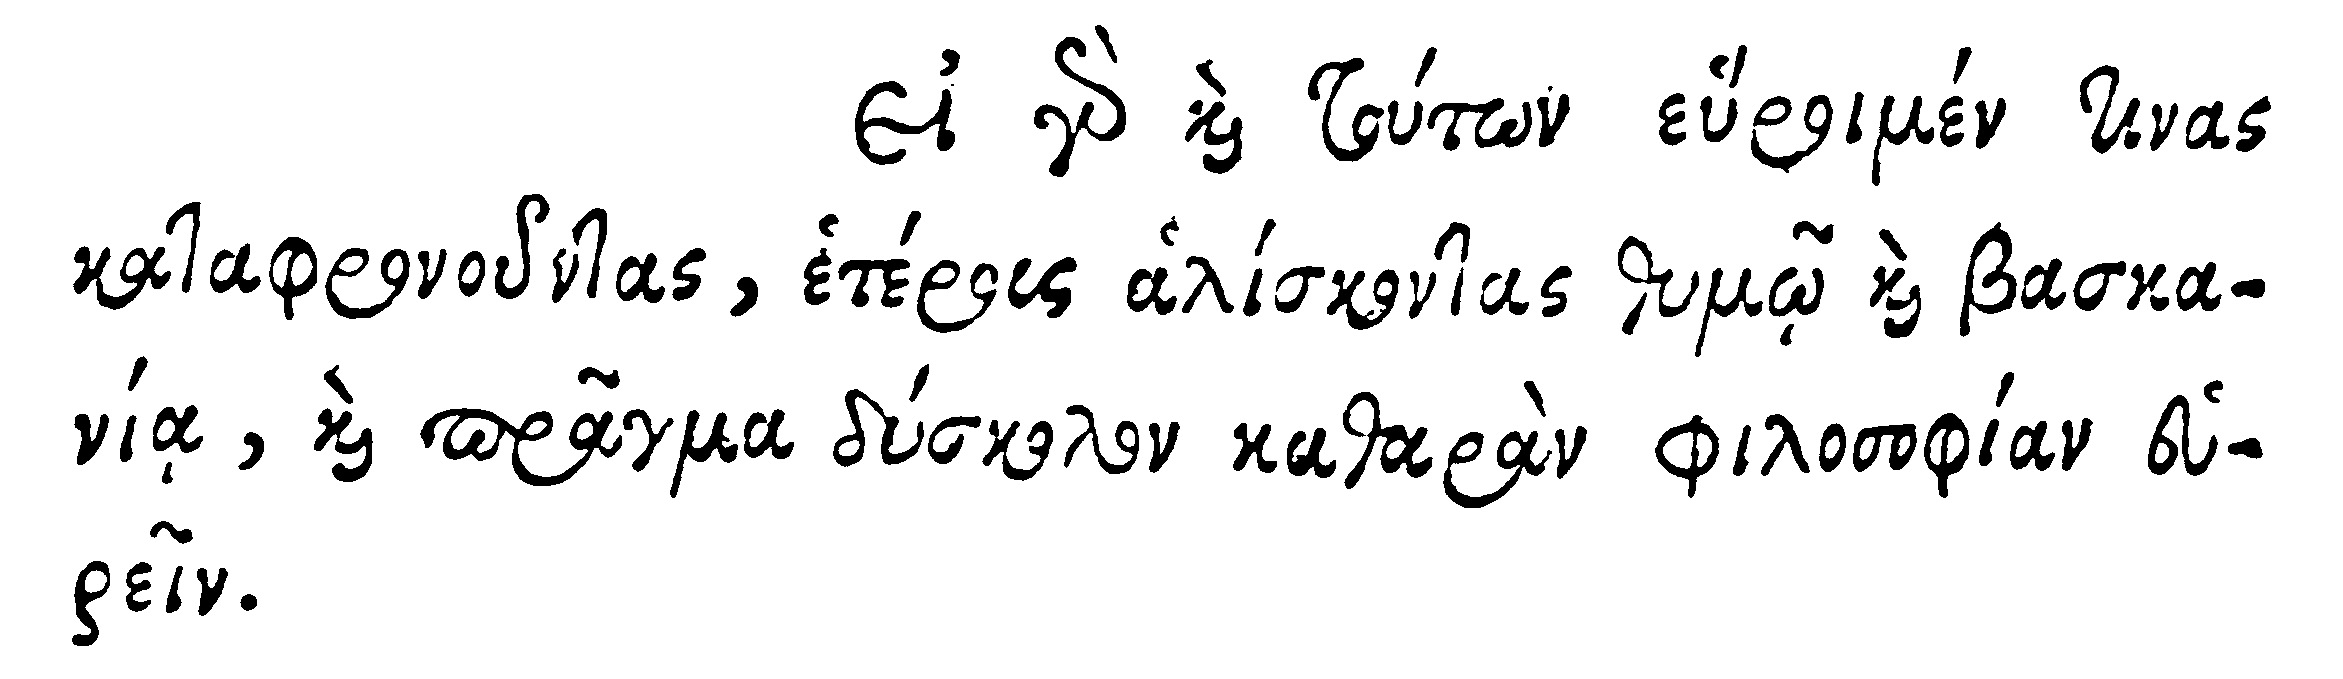 Εἰ γὰρ καὶ τούτων εὕροιμέν τινας
καταφρονοῦντας, ἑτέροις ἁλίσκονται θυμῷ καὶ βασκα-
νίᾳ, καὶ πρᾶγμα δύσκολον καθαρὰν φιλοσοφίαν εὑ-
ρεῖν.